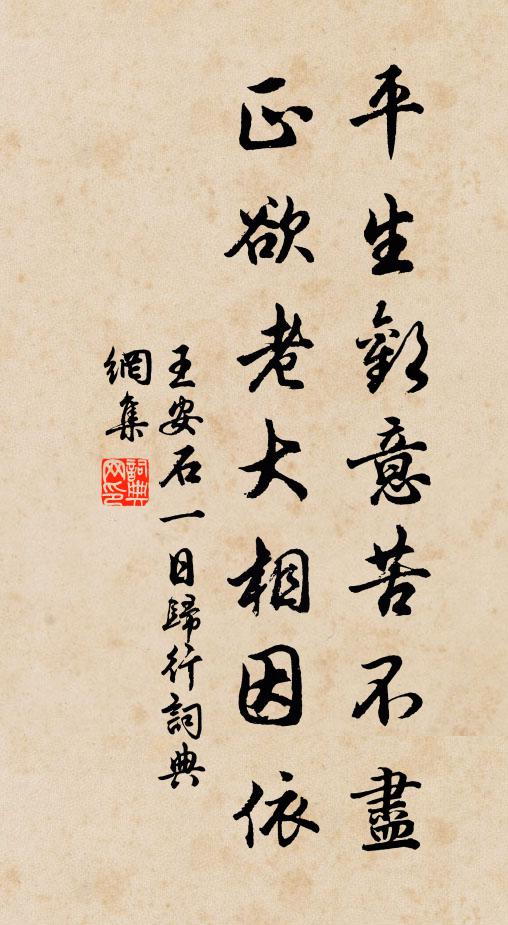 平生歡意苦不盡
正欲老大相因依
王安石一日歸行詞典
網集
詞典網印